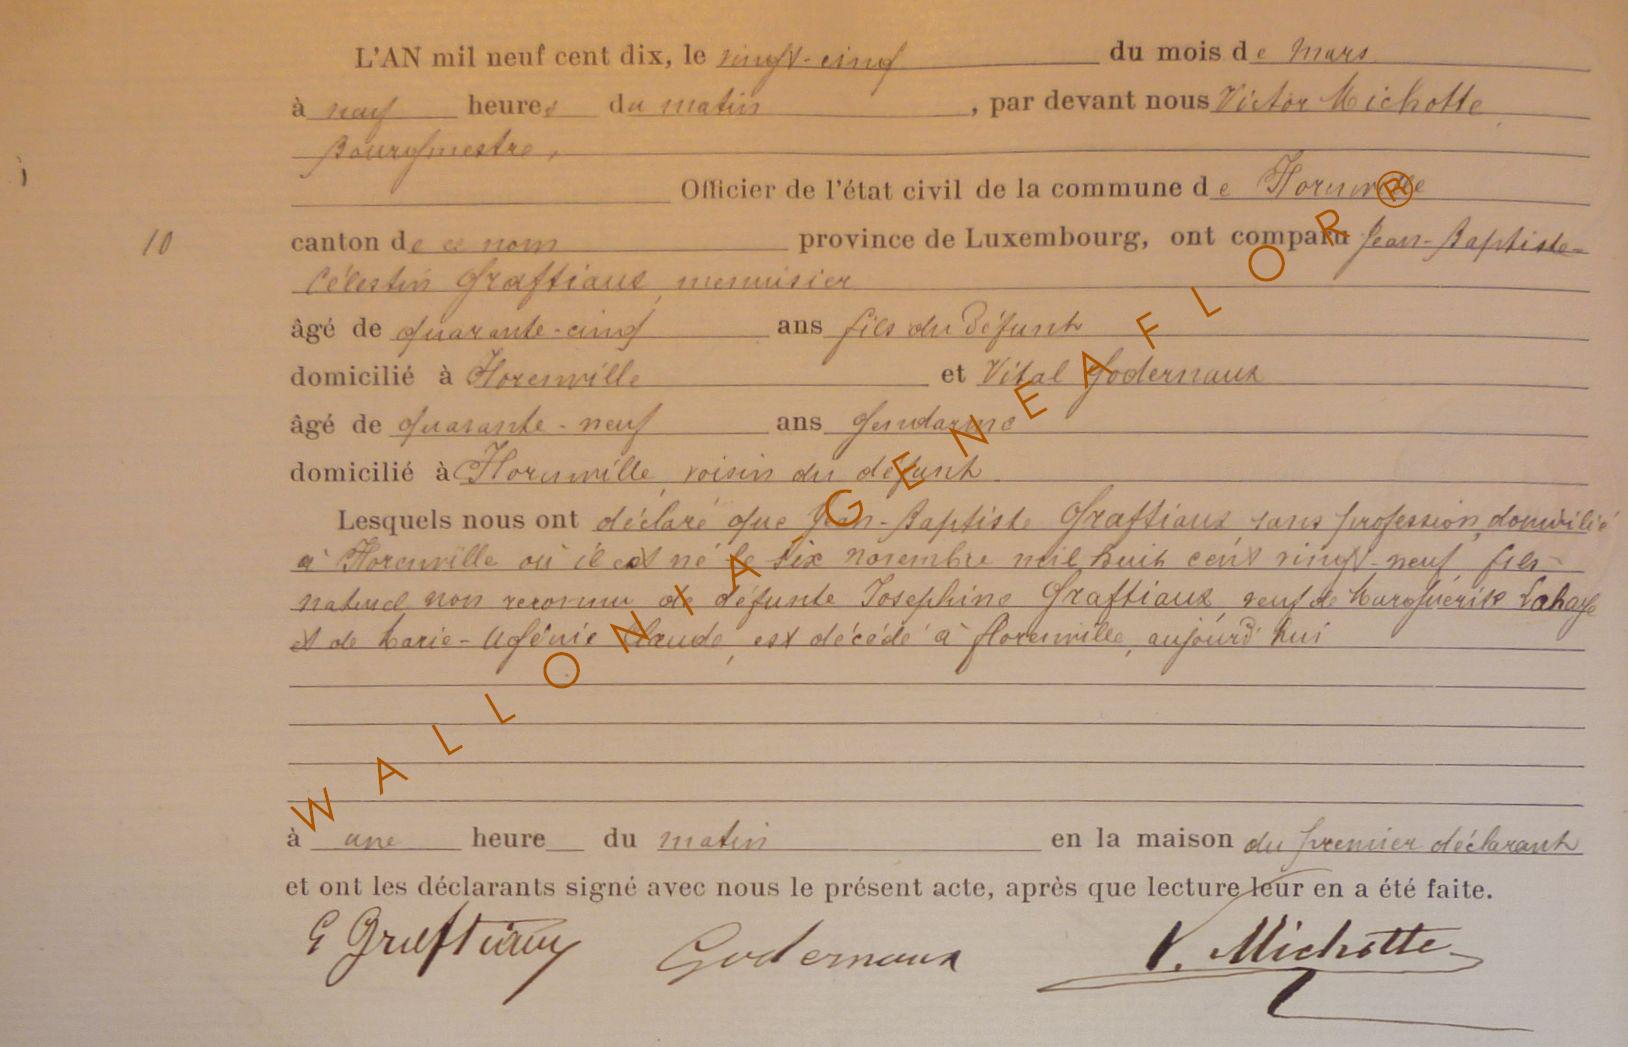 L'AN mil neuf cent dix, le vingt-cinq du mois de Mars
à neuf heures du matin, par devant nous Victor Michotte
Bourgmestre,
Officier de l'état civil de la commune de Florenville
10 canton de ce nom province de Luxembourg, ont comparu Jean-Baptiste-
Célestin Graftiaux, menuisier
âgé de quarante-cinq ans fils du défunt
domicilié à Florenville et Vital Godernaux
âgé de quarante-neuf ans gendarme
domicilié à Florenville, voisin du défunt
Lesquels nous ont déclaré que Jean-Baptiste Graftiaux sans profession, domicilié
à Florenville où il est né le six novembre mil huit cent vingt-neuf fils
naturel non reconnu de défunte Josephine Graftiaux, veuf de Marguérite Lahaye
et de Marie-Ugénie Claude, est décédé à florenville, aujourd'hui
à une heure du matin en la maison du premier déclarant
et ont les déclarants signé avec nous le présent acte, après que lecture leur en a été faite.
Graftiaux Godernaux V. Michotte
WALLONIA-GENEAFLOR®